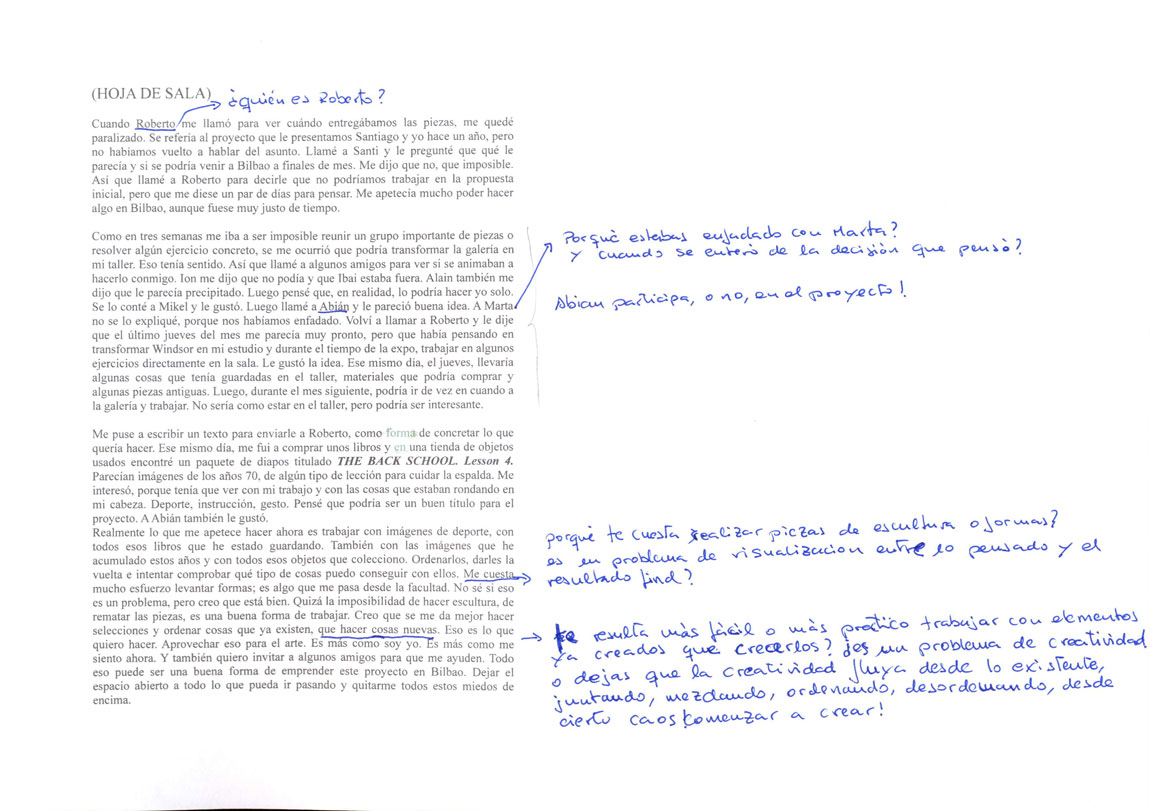 (HOJA DE SALA)
¿quién es Roberto?
Cuando Roberto me llamó para ver cuándo entregábamos las piezas, me quedé
paralizado. Se refería al proyecto que le presentamos Santiago y yo hace un año, pero
no habíamos vuelto a hablar del asunto. Llamé a Santi y le pregunté que qué le
parecía y si se podría venir a Bilbao a finales de mes. Me dijo que no, que imposible.
Así que llamé a Roberto para decirle que no podríamos trabajar en la propuesta
inicial, pero que me diese un par de días para pensar. Me apetecía mucho poder hacer
algo en Bilbao, aunque fuese muy justo de tiempo.
Como en tres semanas me iba a ser imposible reunir un grupo importante de piezas o
resolver algún ejercicio concreto, se me ocurrió que podría transformar la galería en
mi taller. Eso tenía sentido. Así que llamé a algunos amigos para ver si se animaban a
hacerlo conmigo. Ion me dijo que no podía y que Ibai estaba fuera. Alain también me
dijo que le parecía precipitado. Luego pensé que, en realidad, lo podría hacer yo solo.
Se lo conté a Mikel y le gustó. Luego llamé a Abián y le pareció buena idea. A Marta
no se lo expliqué, porque nos habíamos enfadado. Volví a llamar a Roberto y le dije
que el último jueves del mes me parecía muy pronto, pero que había pensando en
transformar Windsor en mi estudio y durante el tiempo de la expo, trabajar en algunos
ejercicios directamente en la sala. Le gustó la idea. Ese mismo día, el jueves, llevaría
algunas cosas que tenía guardadas en el taller, materiales que podría comprar y
algunas piezas antiguas. Luego, durante el mes siguiente, podría ir de vez en cuando a
la galería y trabajar. No sería como estar en el taller, pero podría ser interesante.
Porquè estabas enfadado con Marta?
Y cuando se enterò de la decisión que pensò?
Abian participa, o no, en el proyecto!
Me puse a escribir un texto para enviarle a Roberto, como forma de concretar lo que
quería hacer. Ese mismo día, me fui a comprar unos libros y en una tienda de objetos
usados encontré un paquete de diapos titulado THE BACK SCHOOL. Lesson 4.
Parecían imágenes de los años 70, de algún tipo de lección para cuidar la espalda. Me
interesó, porque tenía que ver con mi trabajo y con las cosas que estaban rondando en
mi cabeza. Deporte, instrucción, gesto. Pensé que podría ser un buen título para el
proyecto. A Abián también le gustó.
Realmente lo que me apetece hacer ahora es trabajar con imágenes de deporte, con
todos esos libros que he estado guardando. También con las imágenes que he
acumulado estos años y con todos esos objetos que colecciono. Ordenarlos, darles la
vuelta e intentar comprobar qué tipo de cosas puedo conseguir con ellos. Me cuesta
mucho esfuerzo levantar formas; es algo que me pasa desde la facultad. No sé si eso
es un problema, pero creo que está bien. Quizá la imposibilidad de hacer escultura, de
rematar las piezas, es una buena forma de trabajar. Creo que se me da mejor hacer
selecciones y ordenar cosas que ya existen, que hacer cosas nuevas. Eso es lo que
quiero hacer. Aprovechar eso para el arte. Es más como soy yo. Es más como me
siento ahora. Y también quiero invitar a algunos amigos para que me ayuden. Todo
eso puede ser una buena forma de emprender este proyecto en Bilbao. Dejar el
espacio abierto a todo lo que pueda ir pasando y quitarme todos estos miedos de
encima.
porquè te cuesta realizar piezas de escultura o formas?
es un problema de visualizacion entre lo pensado y el
resultado final?
te resulta màs fàcil o màs pràctico trabajar con elementos
ya creados que crecerlos? ¿es un problema de creatividad
o dejas que la creatividad fluya desde lo existente,
juntando, mezclando, ordenando, desordenando, desde
cierto caos comenzar a crear!